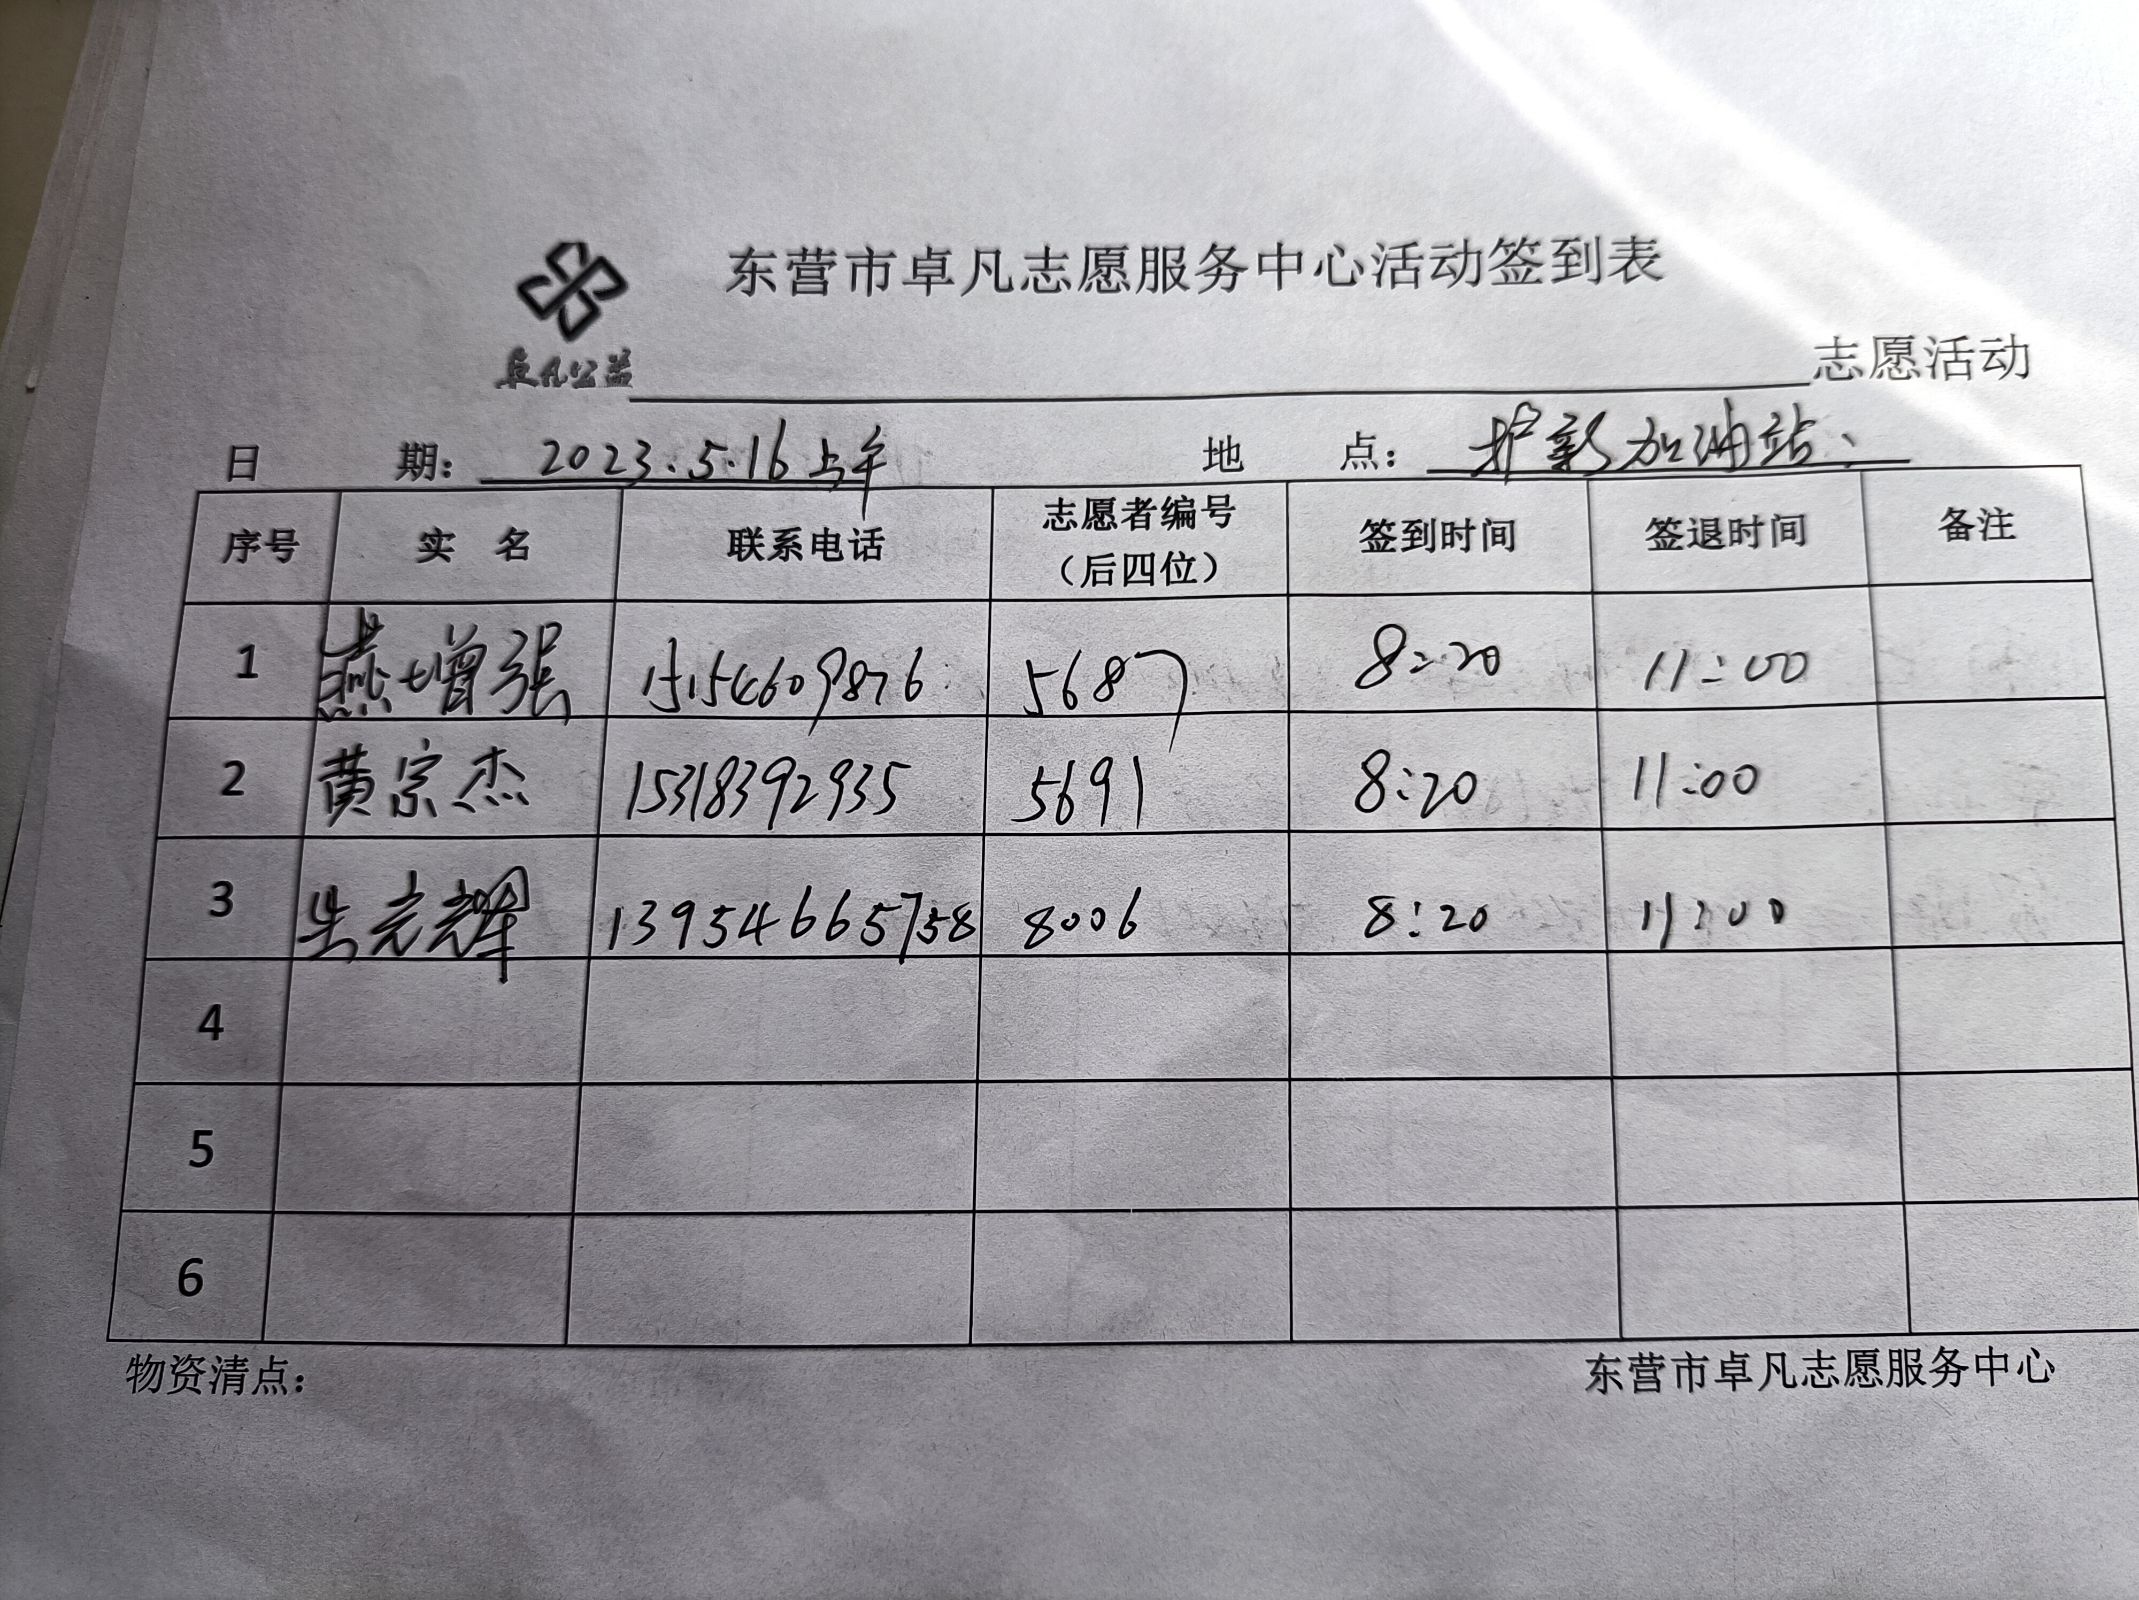 东营市卓凡志愿服务中心活动签到表
卓凡公益
志愿活动
日 期： 2023.5.16上午 地 点： 护新加油站、
序号 实 名 联系电话 志愿者编号（后四位） 签到时间 签退时间 备注
1 燕增强 15154609876 5687 8:20 11:00
2 黄宗杰 15318392935 5691 8:20 11:00
3 生元辉 13954665758 8006 8:20 11:00
4
5
6
物资清点： 东营市卓凡志愿服务中心